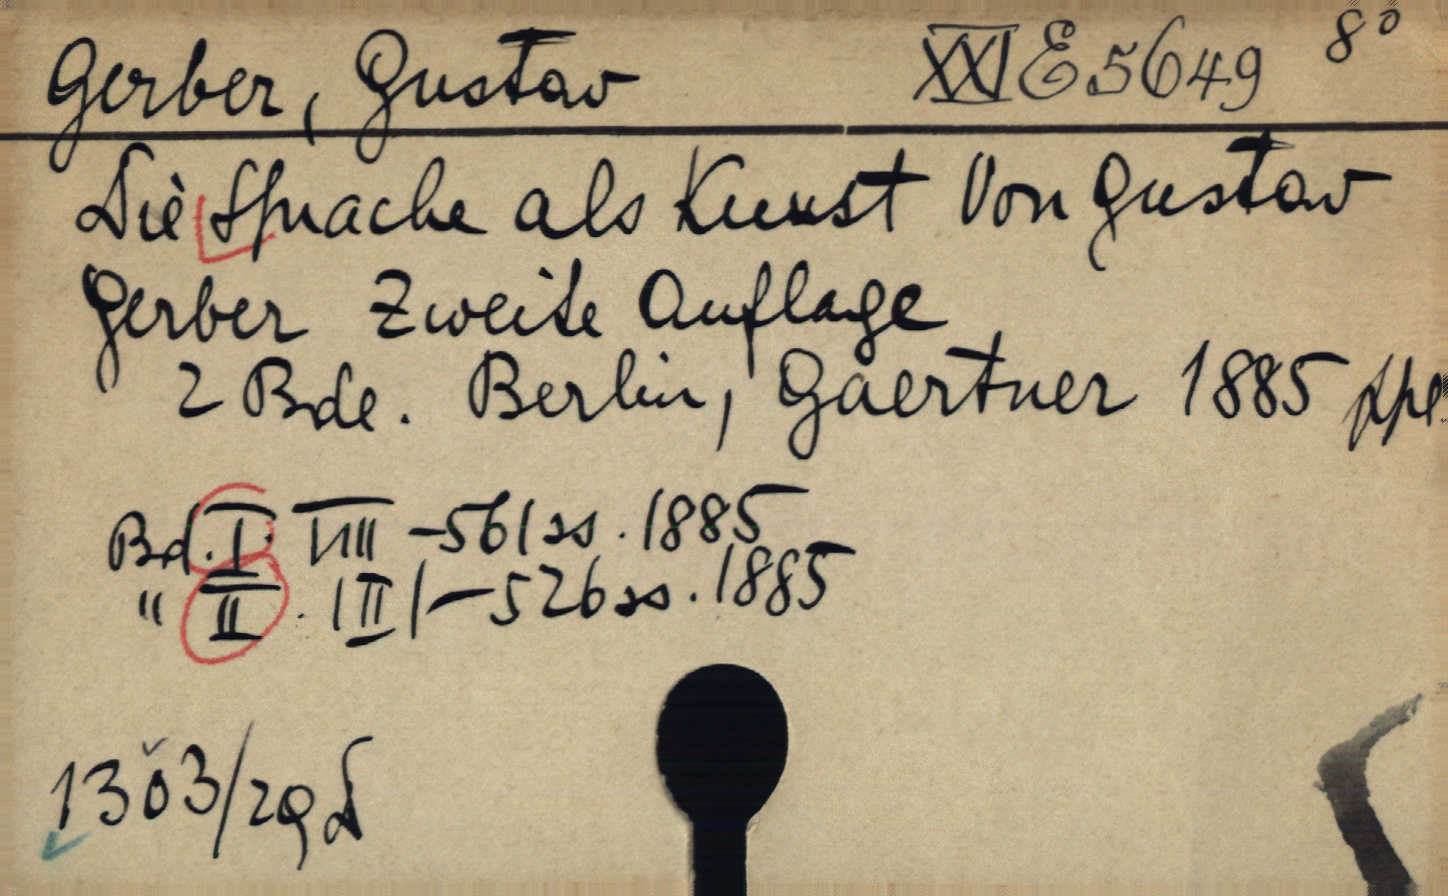 Gerber, Gustav XXI E 5649 8°
Die Sprache als Kunst Von Gustav
Gerber Zweite Auflage
2 Bde. Berlin, Gaertner 1885
Bd. I. VIII - 561 ss. 1885
" II. |II| - 526 ss. 1885